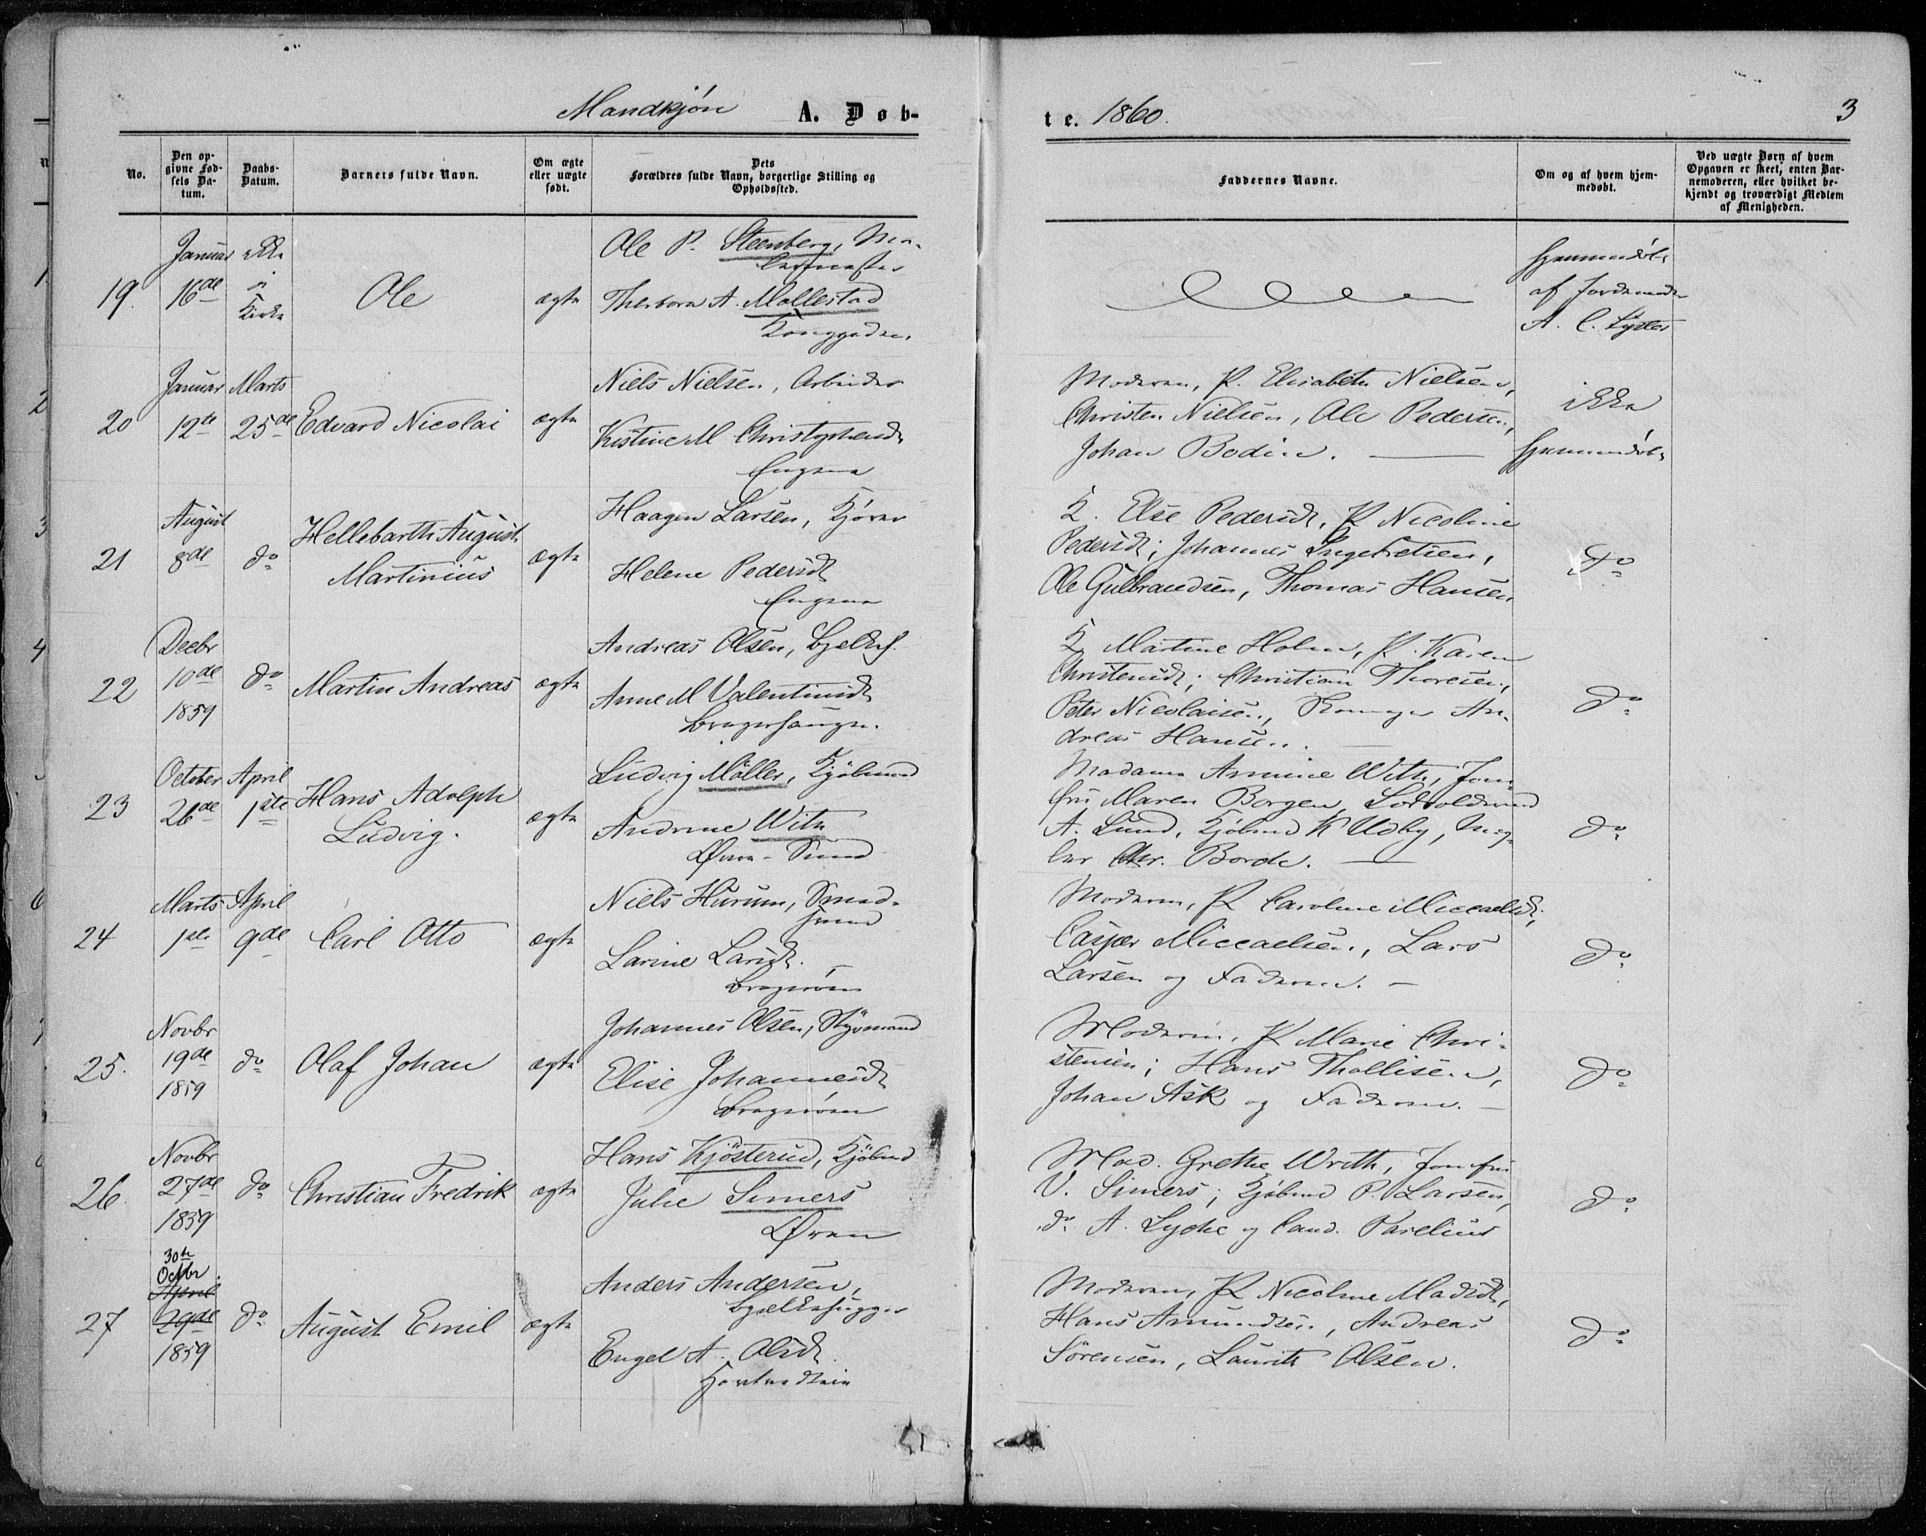 Mandkjøn A. Døb-
te. 1860. 3
No.
Den op-
givne Fød-
sels Da-
tum.
Daabs-
Datum.
Barnets fulde Navn.
Om ægte
eller uægte
født.
Dets
Forældres fulde Navn, borgerlige Stilling og
Opholdssted.
Faddernes Navne.
Om og af hvem hjem-
medøbt.
Ved uægte Børn af hvem
Opgaven er skeet, enten Bar-
nemoderen, eller hvilket be-
kjendt og troværdigt Medlem
af Menigheden.
19.
Januar
16de
ikke
i
Kirke
Ole
ægte
Ole P. Steenberg, Ma-
lermester
Thorbora A. Mollestad
Konggaden.
Hjemmedøbt
af Jordemoder
A. C.
20
Januar
12te
Marts
25de
Edvard Nicolai
ægte
Niels Nielsen, Arbeider
Kistine M Christophersdt
Engene
Moderen, P. Elisabeth Nielsen,
Christen Nielsen, Ole Pedersen,
Johan Bodin.
ikke
Hjemmedøbt
21
August
8de
do
Hellebarth August
Martinius
ægte
Haagen Larsen, Kjører
Helene Pedersdt
Engene
K. Else Pedersdt, P Nicoline
Pedersdt; Johannes Ingebretsen,
Ole Gulbrandsen, Thomas Hansen
do
22
Decbr
10de
1859
do
Martin Andreas
ægte
Andreas Olsen, Bjelkeh.
Anne M Valentinsdt
Bragerhaugen.
K Martine Holm, P. Karen
Christensdt; Christian Thoresen,
Peter Nicolaisen, An-
dreas Hansen.
do
23
October
26de
April
1ste
Hans Adolph
Ludvig.
ægte
Ludvig Möller, Kjøbmand
Andrine With
Øvre-Sund
Madame Armine With, Jom-
fru Maren Borgen,
A. Lund, Kjøbmd K Udby, Mæg-
ler Chr. Borch.
do
24
Marts
1ste
April
9de
Carl Otto
ægte
Niels Hurum, Smed-
svend
Larine Larsdt.
Bragerøen
Moderen, P Caroline Miccaelsdt;
Casper Miccaelsen, Lars
Larsen og Faderen.
do
25.
Novbr
19de
1859
do
Olaf Johan
ægte
Johannes Olsen, Styrmand
Elise Johannesdt
Bragerøen
Moderen, P Marie Chri-
stensen; Hans Thollisen,
Johan Ask og Faderen.
do
26.
Novbr
27de
1859
do
Christian Fredrik
ægte
Hans Kjösterud, Kjöbmd
Julie Simers
Øren
Mad. Grethe With, Jomfru
V. Simers; Kjøbmd P. Larsen,
do A. Lyche og Cand. Parelius
do
27
30te
Octbr.
April
29de
1859
do
August Emil
ægte
Anders Andersen,
Bjelkehugger
Engel A. Olsdt.
Moderen, P Nicoline Madsdt,
Hans Amundsen, Andreas
Sörensen, Laurits Olsen.
do